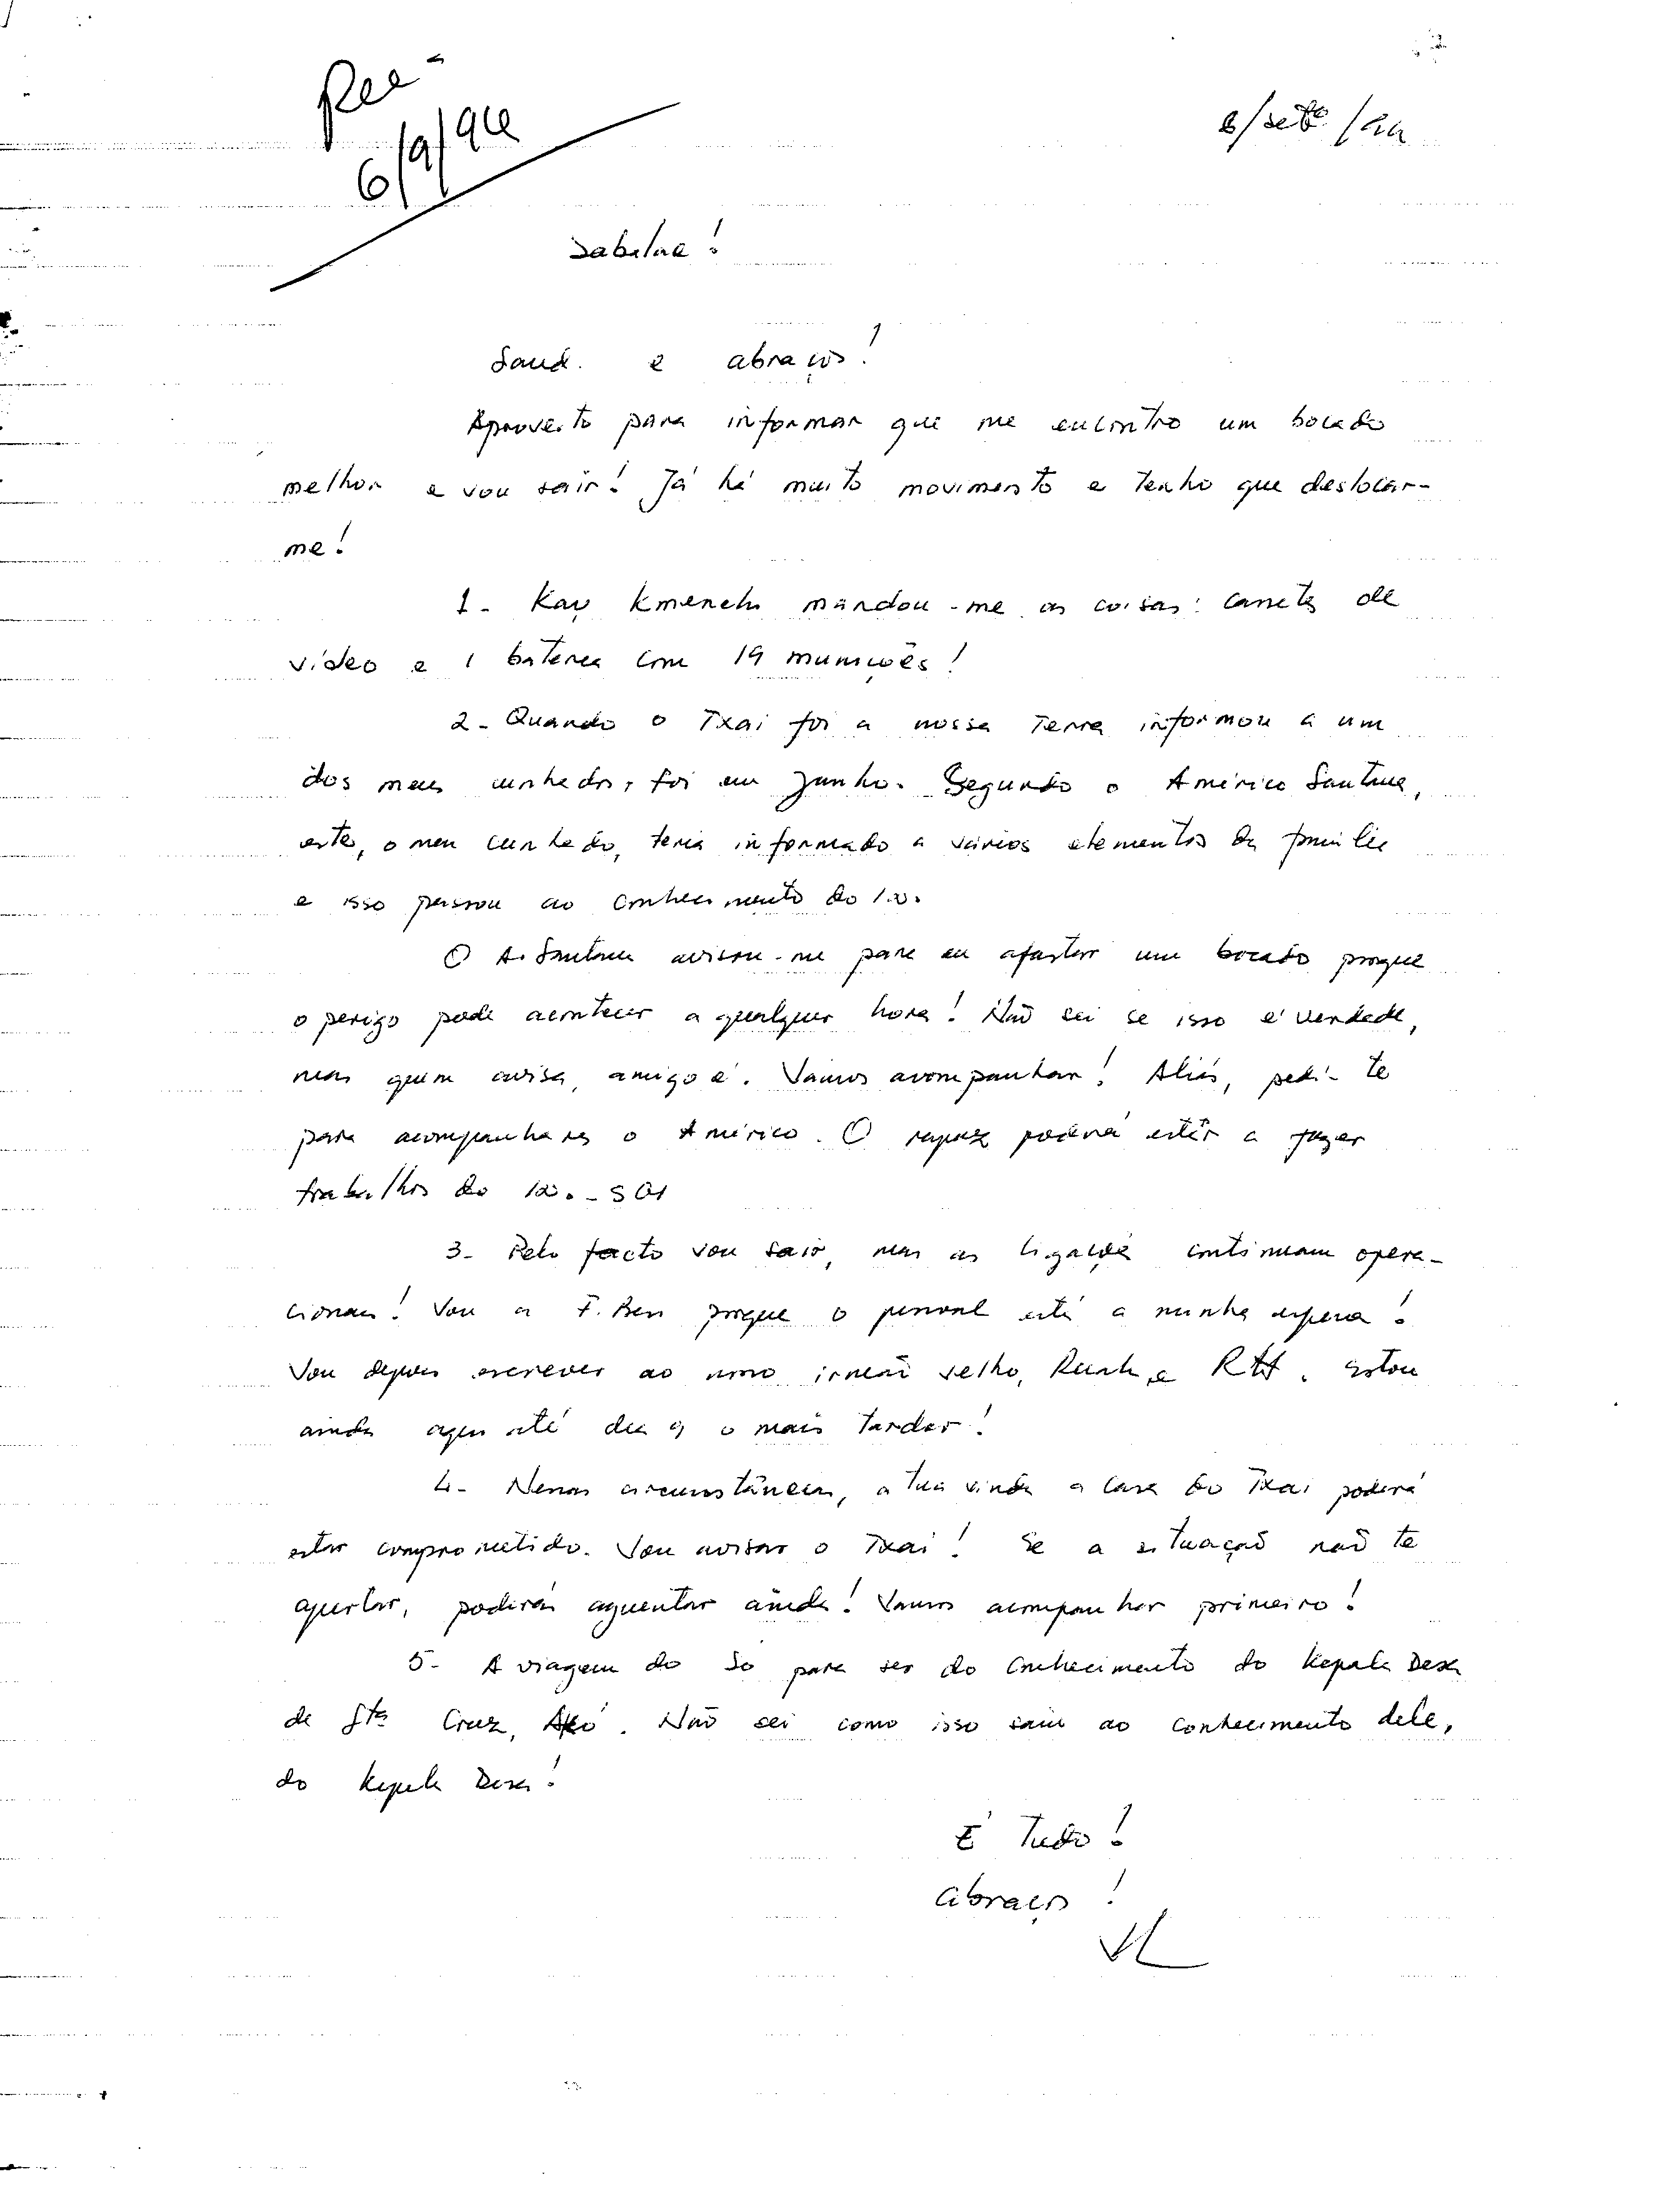 Rec
6/9/94
6/setº/94
Sabalae!
Saud. e abraços!
Aproveito para informar que me encontro um bocado
melhor e vou sair! Já há muito movimento e tenho que deslocar-
me!
1- Kay mandou-me as coisas: de
vídeo e 1 bateria com 19 munições!
2- Quando o Txai foi a nossa Terra informou a um
dos meus cunhados, foi em Junho. Segundo o Américo Santana,
este, o meu cunhado, teria informado a vários elementos da família
e isso passou ao conhecimento do
O A. Santana avisou-me para eu afastar um bocado porque
o perigo pode acontecer a qualquer hora! Não sei se isso é verdade,
mas quem avisa, amigo é. Vamos acompanhar! Aliás, pedi-te
para acompanhares o Américo. O rapaz poderá estar a fazer
trabalhos do
3- Pelo facto vou sair, mas as ligações continuam opera-
cionais! Vou a F. Ben porque o pessoal está a minha espera!
Vou depois escrever ao nosso irmão velho, e . Estou
ainda aqui até dia 9 o mais tardar!
4- Nessas circunstâncias, a tua vinda a casa do Txai poderá
estar comprometido. Vou avisar o Txai! Se a situação não te
apertar, poderás aguentar ainda! Vamos acompanhar primeiro!
5- A viagem do So para ser do conhecimento do Kepala Desa
de Sta Cruz, . Não sei como isso saiu ao conhecimento dele,
do Kepala Desa!
É Tudo!
abraços!